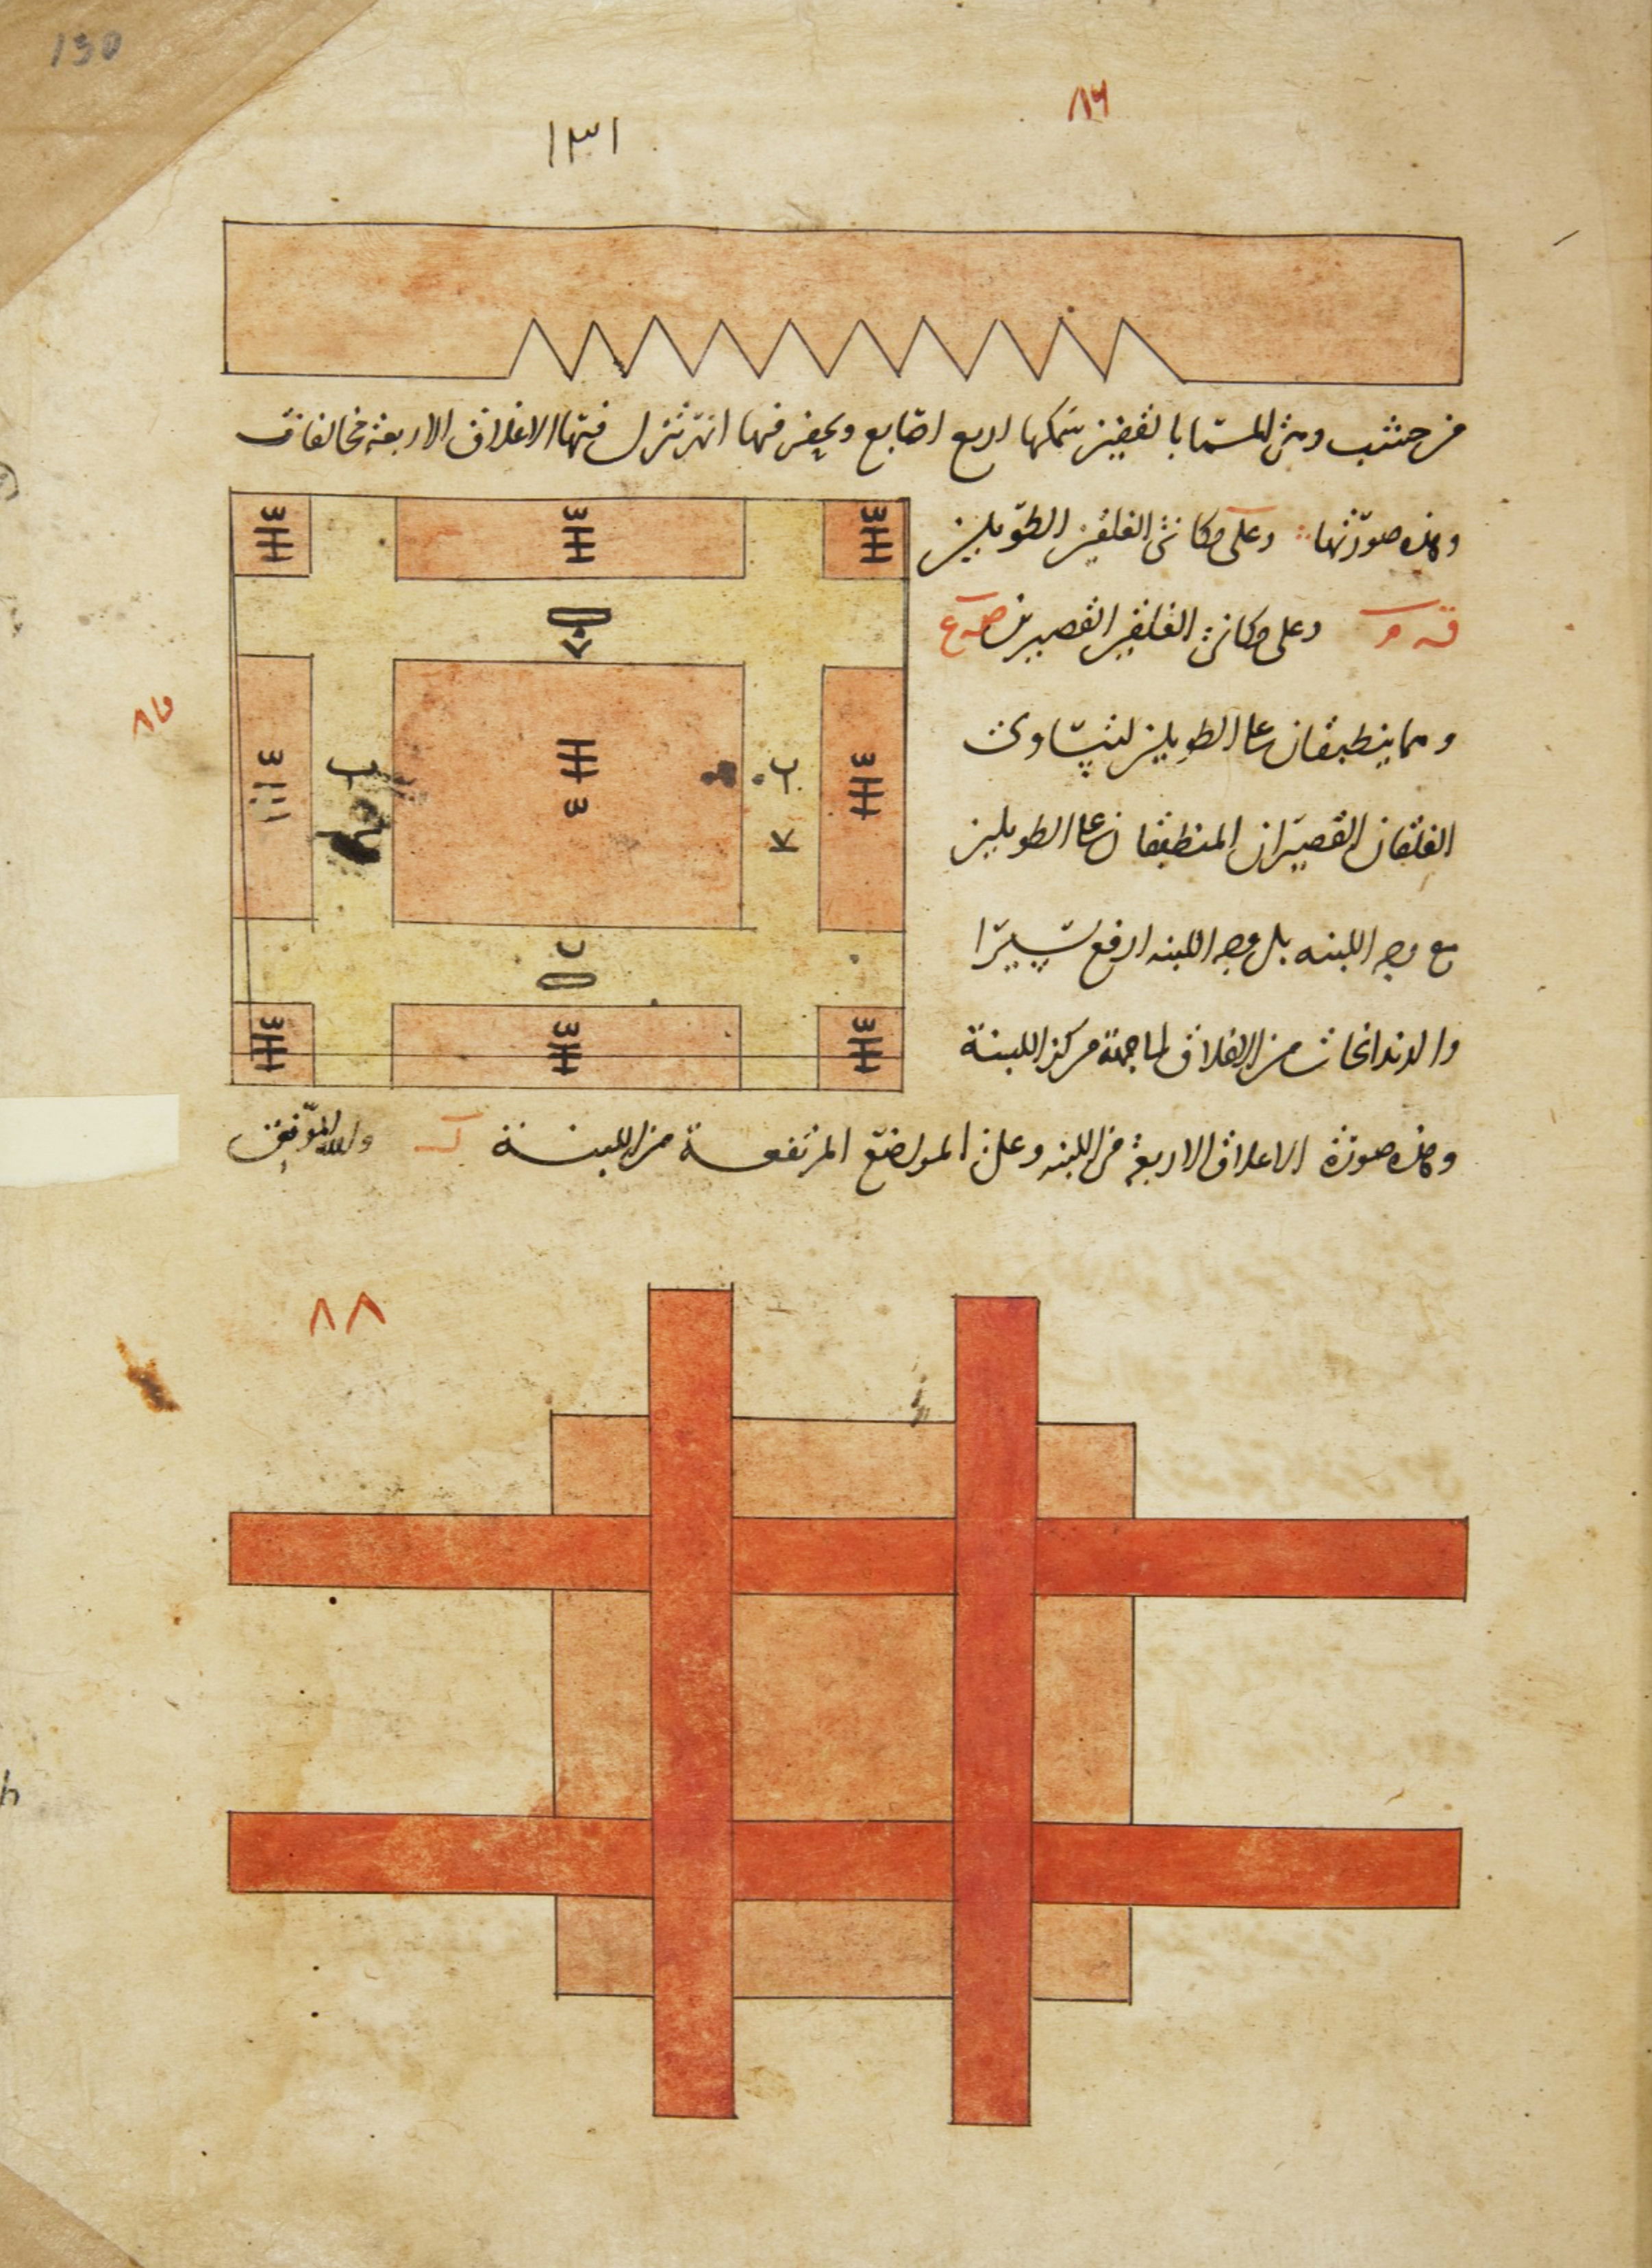 130
٨٦
١٣١
من خشب ومن المسمّا بالقفيز سمكها اربع اصابع ويحفر فيها انهر تنزل فيها الاغلاق الاربعة مخالفات
وهذه صورتها وعلى مكاني الغلقين الطويلين
وعلى مكاني الغلقين القصيرين ص ع
وهما ينطبقان على الطويلين ليتساوى
الغلقان القصيران المنطبقان على الطويلين
٨٧
مع وجه اللبنه بل وجه اللبنه ارفع يسيرًا
والدندانجات من الاغلاق الى جهة مركز اللبنة
وهذه صورة الاغلاق الاربعة في اللبنه وعلى المواضع المرتفعة من اللبنة والله الموفق
٨٨